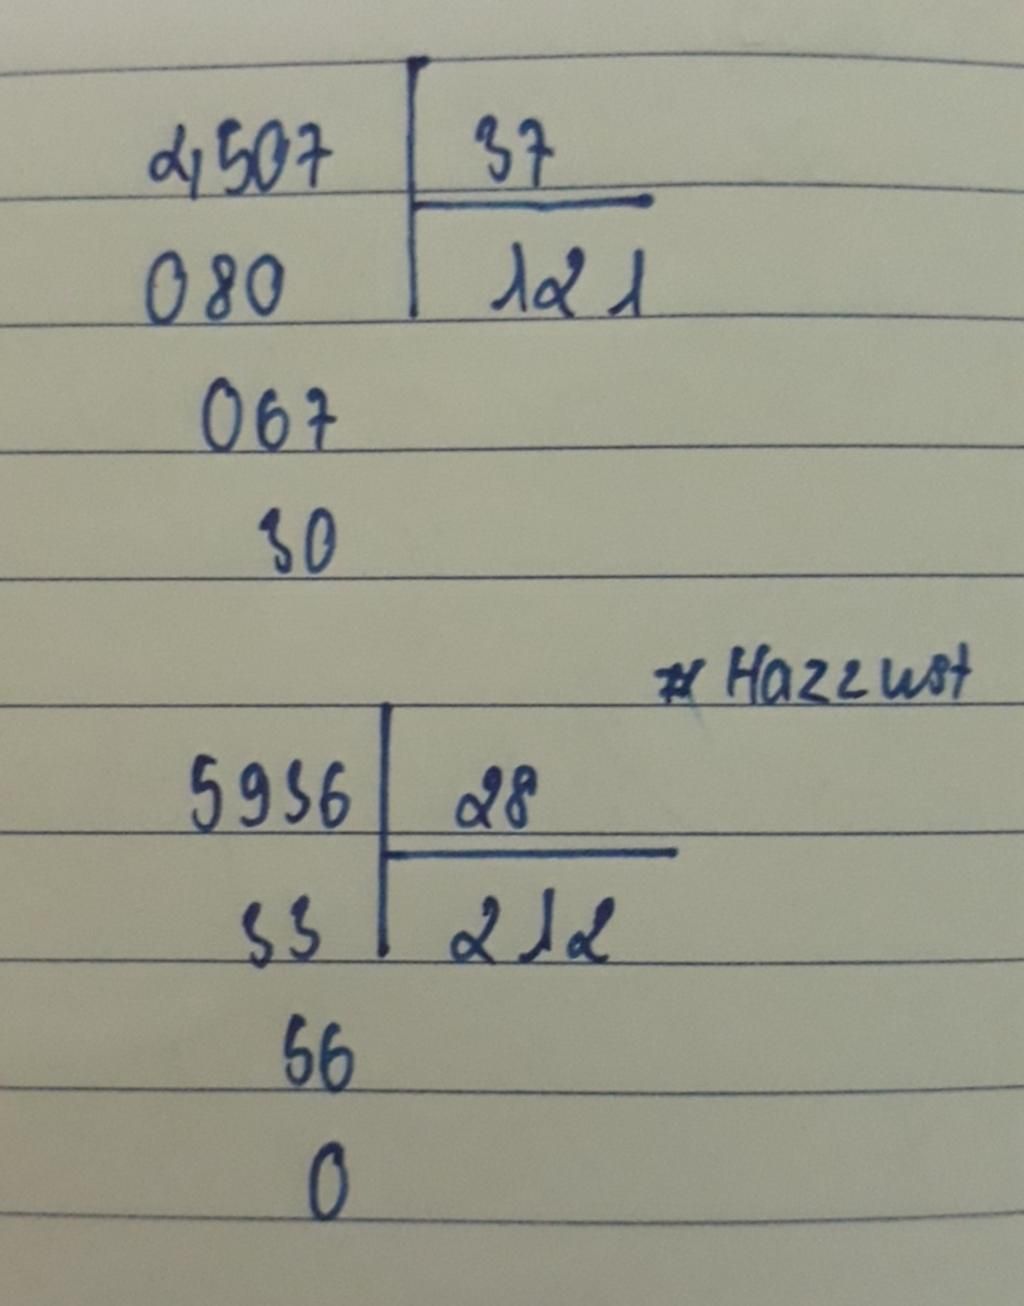 4507 37
080 121
067
30
# Hazzust
5936 28
33 212
56
0